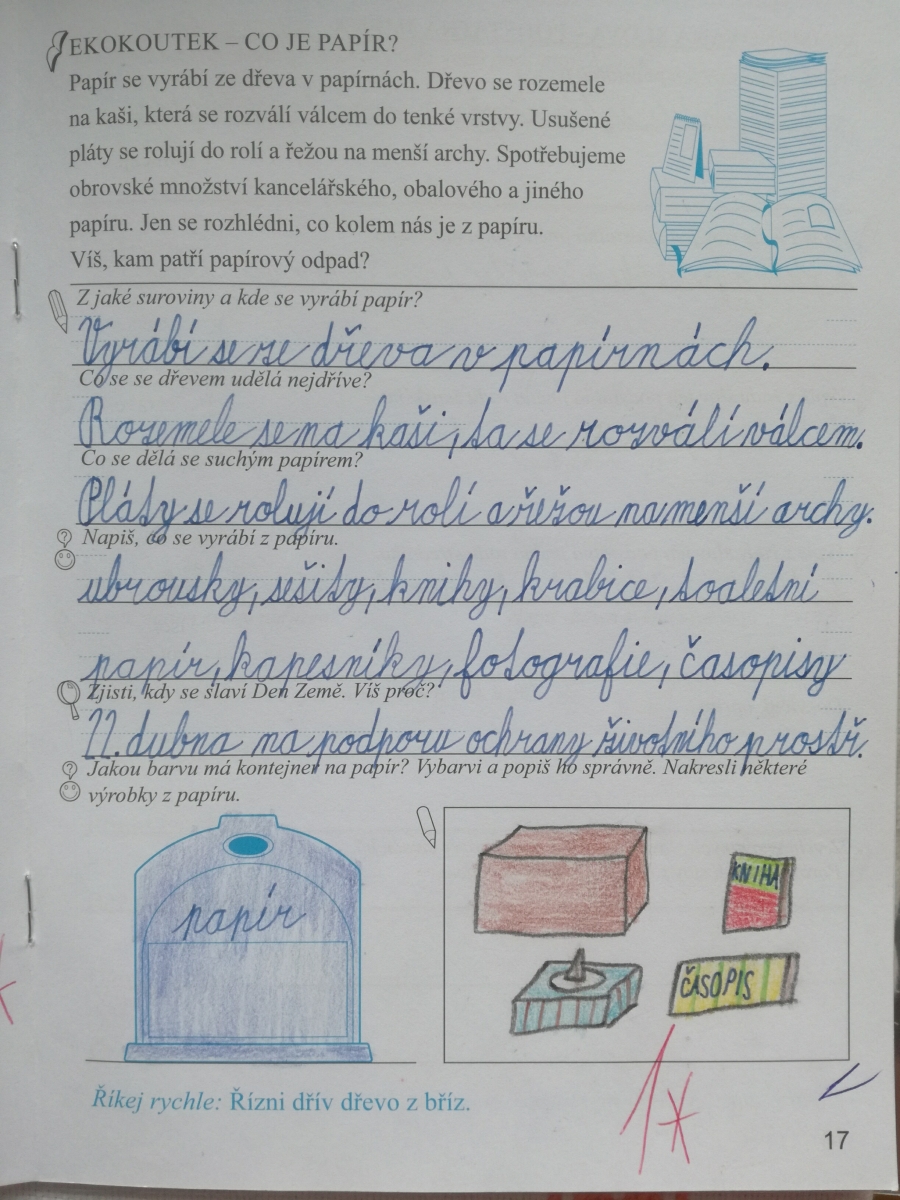 EKOKOUTEK – CO JE PAPÍR?
Papír se vyrábí ze dřeva v papírnách. Dřevo se rozemele
na kaši, která se rozválí válcem do tenké vrstvy. Usušené
pláty se rolují do rolí a řežou na menší archy. Spotřebujeme
obrovské množství kancelářského, obalového a jiného
papíru. Jen se rozhlédni, co kolem nás je z papíru.
Víš, kam patří papírový odpad?
Z jaké suroviny a kde se vyrábí papír?
Vyrábí se ze dřeva v papírnách.
Co se se dřevem udělá nejdříve?
Rozemele se na kaši, ta se rozválí válcem.
Co se dělá se suchým papírem?
Pláty se rolují do rolí a řežou na menší archy.
Napiš, co se vyrábí z papíru.
ubrousky, sešity, knihy, krabice, toaletní
papír, kapesníky, fotografie, časopisy
Zjisti, kdy se slaví Den Země. Víš proč?
22. dubna na podporu ochrany životního prostř.
Jakou barvu má kontejner na papír? Vybarvi a popiš ho správně. Nakresli některé
výrobky z papíru.
papír
KNIHA
ČASOPIS
Říkej rychle: Řízni dřív dřevo z bříz.
1*
17